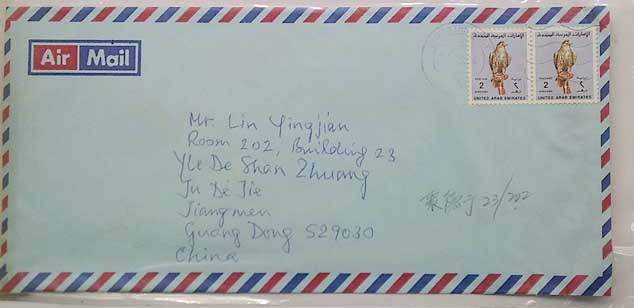 Air Mail
الإمارات العربية المتحدة
الإمارات العربية المتحدة
2 ٢
2 ٢
UNITED ARAB EMIRATES
UNITED ARAB EMIRATES
Mr Lin Yingjian
Room 202, Building 23
Yue De Shan Zhuang
Ju De Jie
Jiangmen
Guang Dong 529030
China
23/202